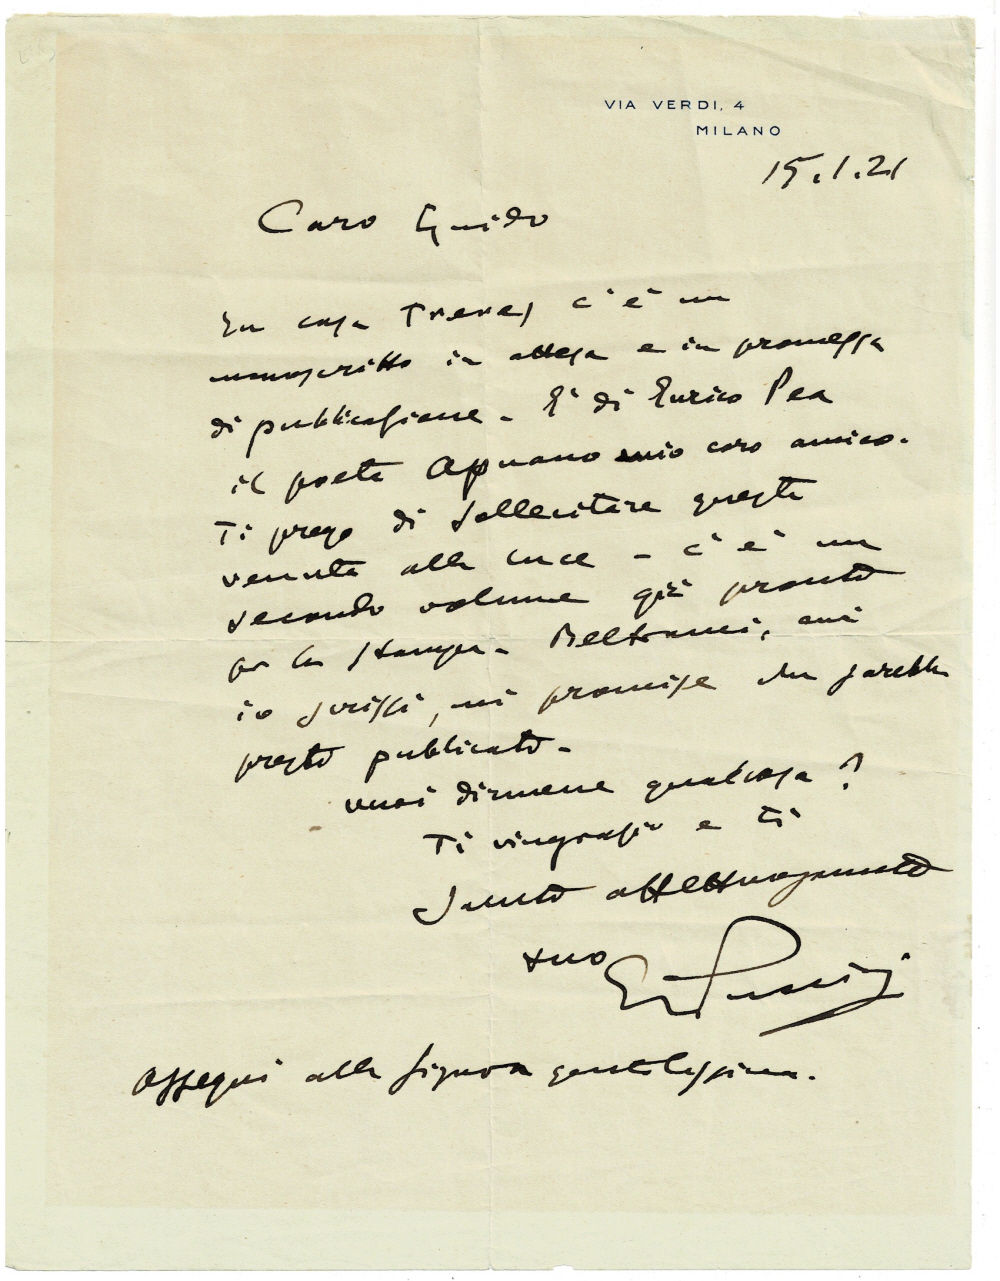 VIA VERDI, 4
MILANO
15.1.21
Caro Guido
In casa Treves c'è un
manoscritto in attesa e in promessa
di pubblicazione - È di Enrico Pea
il poeta Apuano mio caro amico.
Ti prego di sollecitare questa
venuta alla luce - c'è un
secondo volume già pronto
per la stampa - Beltrami, cui
io scrissi, mi promise che sarebbe
presto pubblicato -
vuoi dirmene qualcosa?
Ti ringrazio e ti
saluto affettuosamente
tuo
GPuccini
Ossequi alla Signora gentilissima.